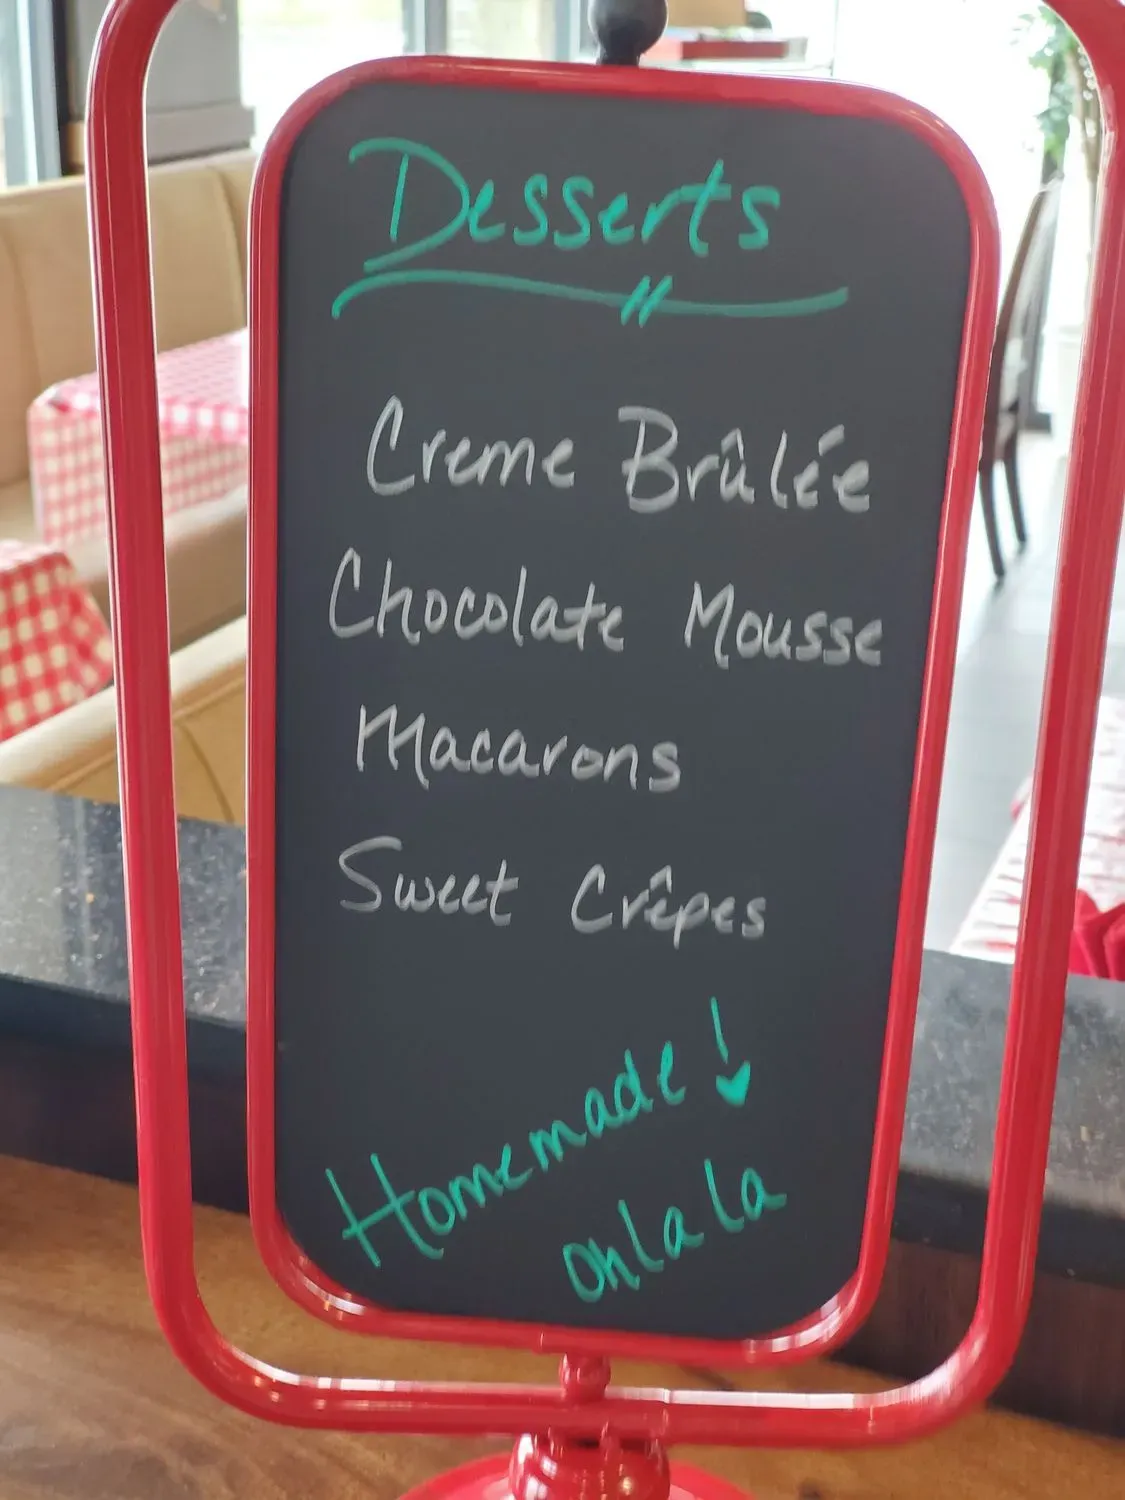 Desserts
Creme Brûlée
Chocolate Mousse
Macarons
Sweet Crêpes
Homemade!
ohlala